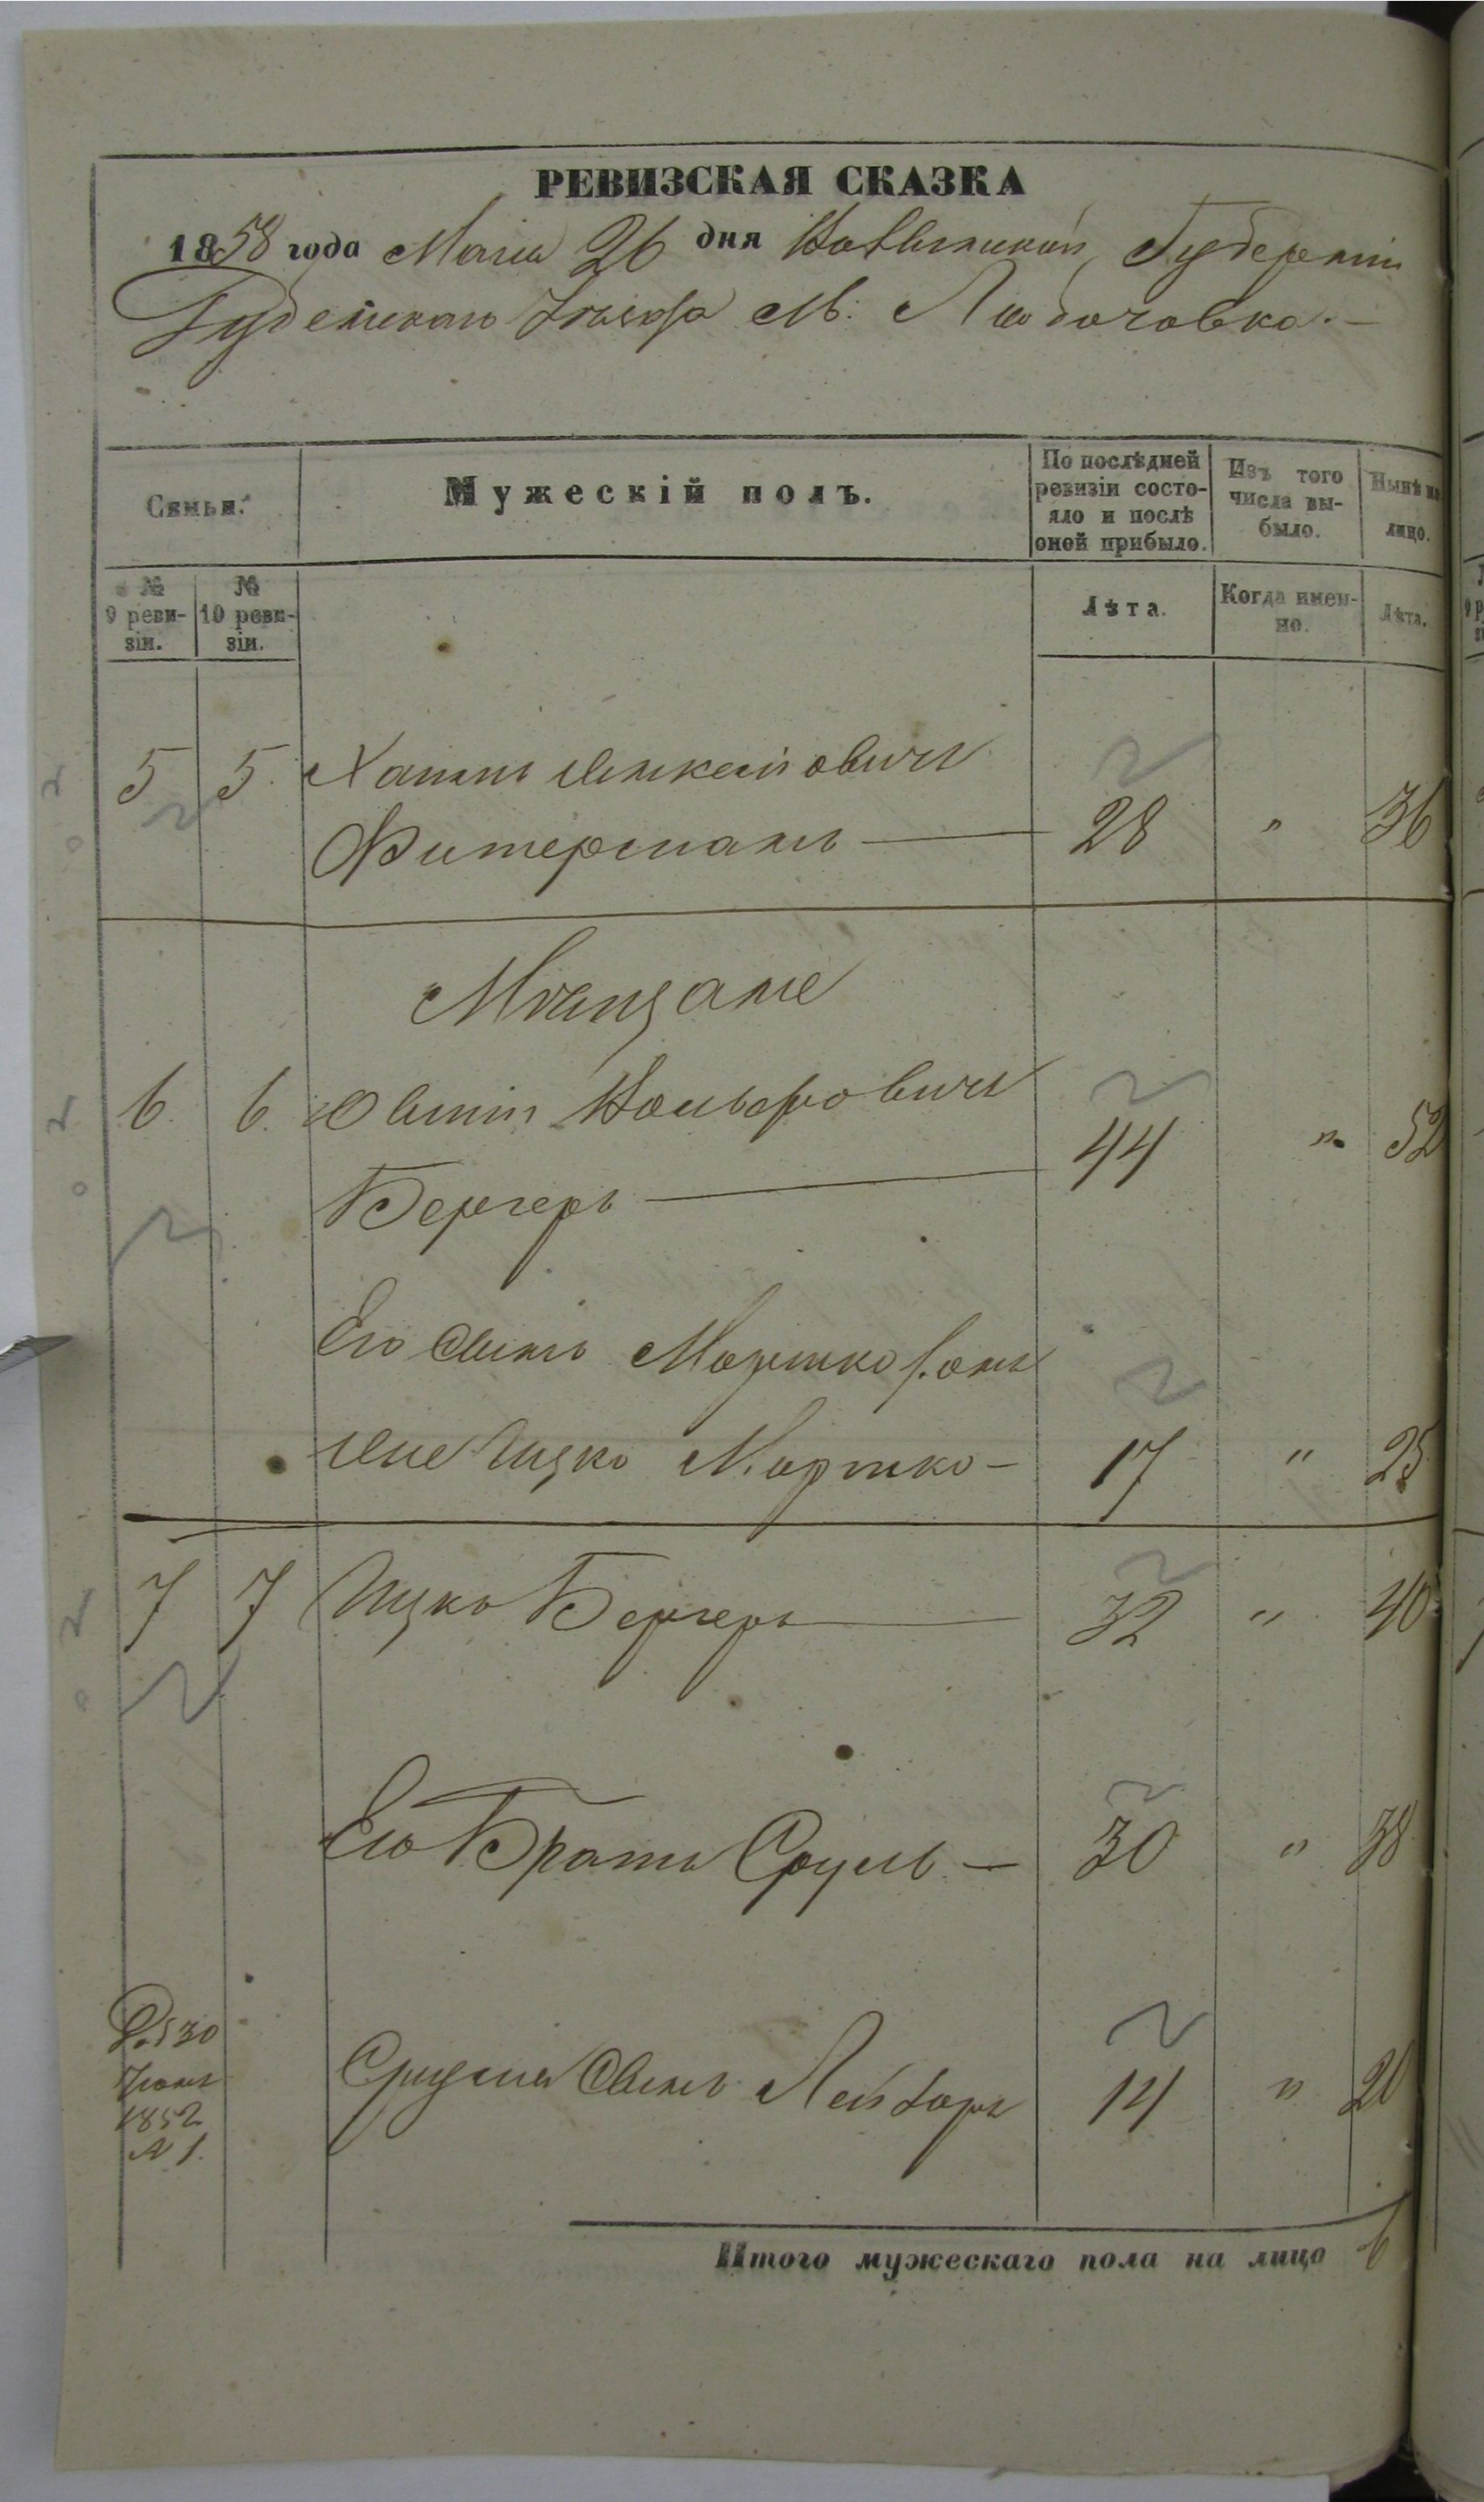 РЕВИЗСКАЯ СКАЗКА
1858 года Маия 26 дня Волынской Губернии
Дубенскаго Уезда М:
Семьи.
Мужескій полъ.
По послѣдней ревизіи состо-яло и послѣ оной прибыло.
Изъ того числа вы-было.
Нынѣ на лицо.
№ 9 реви-зіи.
№ 10 реви-зіи.
Лѣта.
Когда имен-но.
Лѣта.
5 5.
Фитерманъ — 28 " 36
Мѣщане
6. 6. Вольфовичъ
Бергеръ — 44 " 52
Его Сынъ Мортко
Ицко Мортко — 17 " 25
7 7 Ицко Бергеръ — 32 " 40
Его Братъ Сруль — 30 " 38
1852
№ 1.
Сруля Сынъ Лейзоръ 14 " 20
Итого мужескаго пола на лицо 6